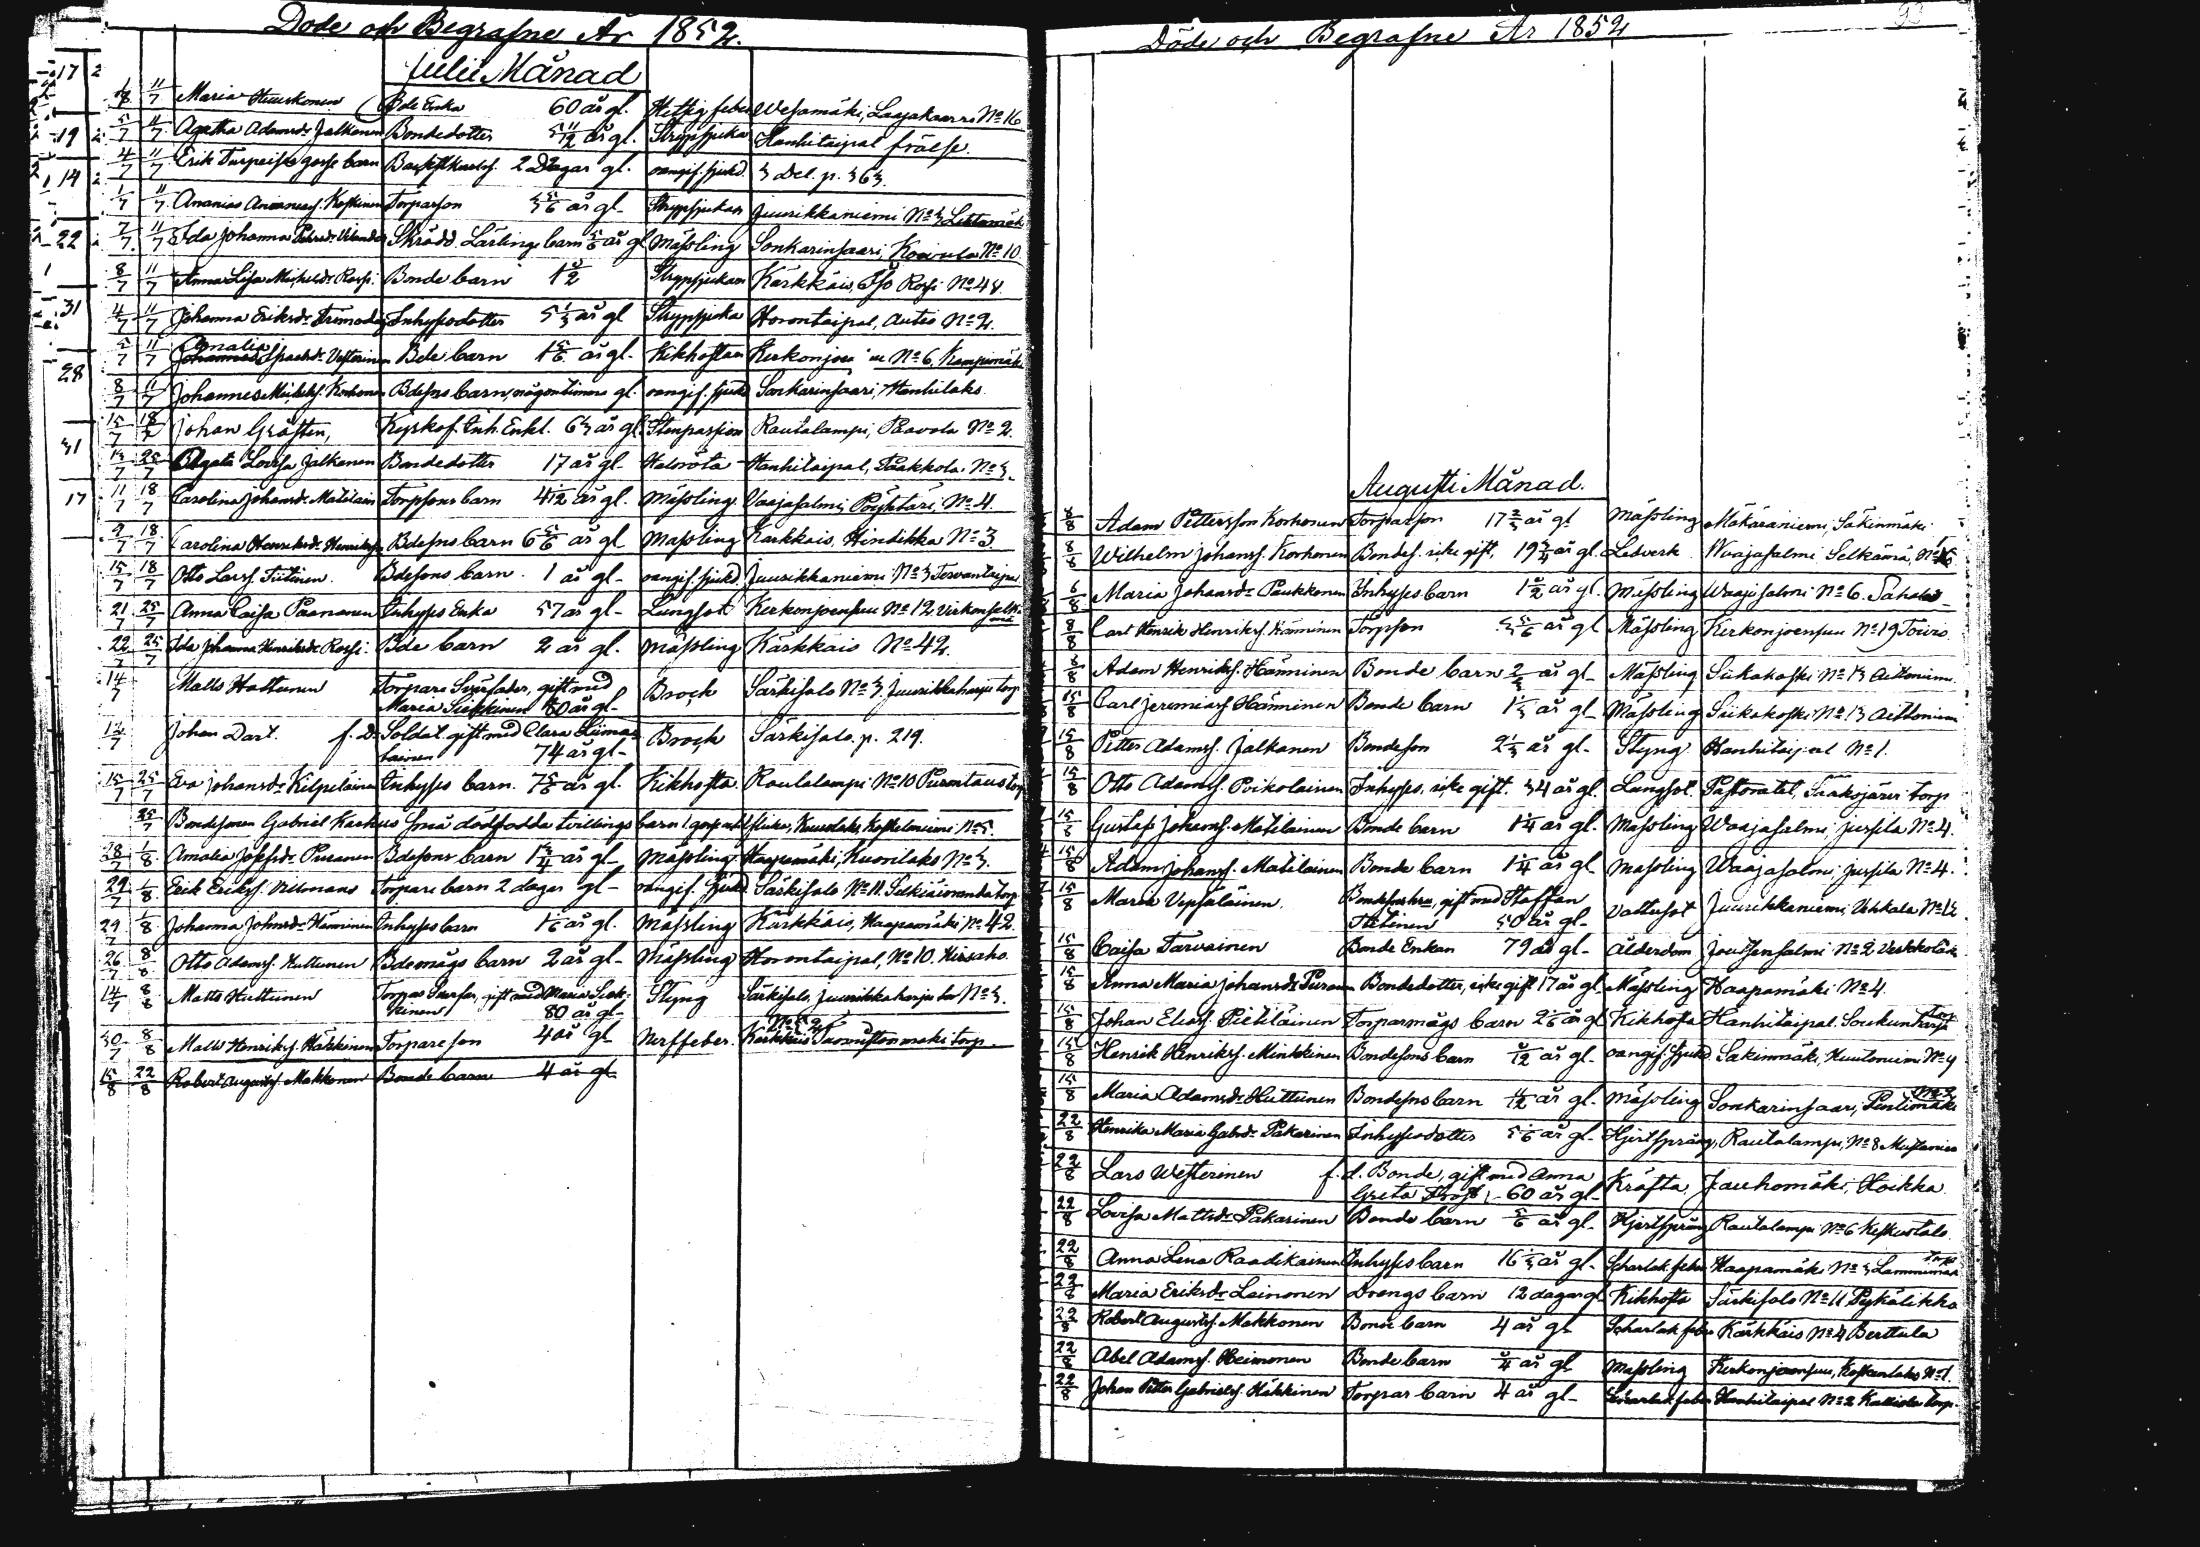 Döde och Begrafne År 1852.
Julii Månad
17 2
1/8 11/7 Maria Huuskonen Bde Enka 60 år gl. Hettig feber Wesamäki, Laajakaarre No 16
5/7 11/7 Agatha Adamsdr Jalkanen Bondedotter 5 11/12 år gl. Strypsjuka Hanhitaipal frälse.
19 2
4/7 11/7 Erik Turpeise gosse barn 2 Dagar gl. oangif. sjukd. 3 Del. p. 363.
14 2
1/7 11/7 Ananias Ananiasf. Koskinen Torparson 3 5/6 år gl. Strypsjukan Juurikkaniemi No 3
22
7/7 11/7 Ida Johanna Skrädd. Lärlings barn 5/6 år gl Mässling Sonkarinsaari, Koivula No 10.
8/7 11/7 Anna Lisa Michelsdr Rossi. Bonde barn 1 1/2 Strypsjukan Kärkkäis, Iso Rossi No 48.
31
4/7 11/7 Johanna Eriksdr Inhysesdotter 5 1/3 år gl Strypsjuka Horontaipal, Autio No 2.
5/7 11/7 Amalia Westerinen Bde barn 1 5/6 år gl. Kikhostan Kerkonjoensuu No 6.
28
8/7 11/7 Johannes Michelsf. Korhonen Bdesons barn, någon timme gl. oangif. sjukd Sonkarinsaari, Hanhilaks
15/7 18/7 Johan Gråsten, Kyrkof. Inh. Enkl. 63 år gl. Stenpassion Rautalampi, Paavola No 2.
31
13/7 25/7 Agata Lovisa Jalkanen Bondedotter 17 år gl. Halsröta Hanhitaipal, Paakkola No 3.
17
11/7 18/7 Carolina Johansdr Matilain Torpsons barn 4/12 år gl. Mässling Vaajasalmi, Pöyhtäri, No 4.
9/7 18/7 Carolina Henriksdr Bdesons barn 6 5/6 år gl Mässling Karkkais Hindikka No 3
15/7 18/7 Otto Larsf. Tiitinen. Bdesons barn. 1 år gl. oangif. sjukd. Juurikkaniemi No 3 Tervantaipal
21/7 25/7 Anna Caisa Paananen Inhyses Enka 57 år gl. Lungsot Kerkonjoensuu No 12
22/7 25/7 Ida Johanna Henriksdr Rossi. Bde barn 2 år gl. Mässling Kärkkais No 42.
14/7 Matts Huttunen Torpare Svärfader, gift med
Maria 80 år gl. Brock Särkisalo No 3. Juurikkaharju torp
12/7 Johan Dart. f. d. Soldat gift med Clara Liima-
tainen 74 år gl. Brock Särkisalo. p. 219.
15/7 25/7 Eva Johansdr Kilpeläinen Inhyses barn. 7 5/6 år gl. Kikhosta. Rautalampi No 10 Purontaus torp
25/7 Bondesonen Gabriel små dödfödda tvillings barn, 1 gosse och 1 flicka, Koskeloniemi No 5.
28/7 1/8 Amalia Josefsdr Puranen Bdesons barn 1 3/4 år gl Mässling Haapamäki, Kuorilaks No 3.
29/7 1/8 Erik Eriksf. Willmans Torpare barn 2 dagar gl. oangif. sjukd. Särkisalo No 11. Selkäisranda torp.
29/7 1/8 Johanna Johansdr Hänninen Inhyses barn 1 1/6 år gl. Mässling Kärkkäis, Haapamäki No 42.
26/7 8/8 Otto Adamsf. Huttunen Bdemågs barn 2 år gl. Mässling Horontaipal, No 10. Hirsaho.
14/7 8/8 Matts Huttunen Torpar Svärfar, gift med Maria Siek-
kinen 80 år gl. Styng Särkisalo, Juurikkaharju No 3.
30/7 8/8 Matts Henriksf. Häkkinen Torpare son 4 år gl Nerffeber. Karkkais torp
15/8 22/8 Robert Augustsf. Makkonen Bonde barn 4 år gl.
Döde och Begrafne År 1852
Augusti Månad.
8/8 Adam Pettersson Korhonen Torparson 17 2/3 år gl Mässling Mäkäräniemi, Säkinmäki
8/8 Wilhelm Johansf. Korhonen Bondes. icke gift, 19 3/4 år gl. Ledverk Waajasalmi Selkämä, No 16
6/8 Maria Johansdr Paukkonen Inhyses barn 1 1/2 år gl. Mässling Waajasalmi No 6.
8/8 Carl Henrik Henriksf. Hänninen Torpson 3 5/6 år gl Mässling Kerkonjoensuu No 19 Toivio
8/8 Adam Henriksf. Hänninen Bonde barn 2/3 år gl. Mässling Siikakoski No 13 Aittoniemi.
15/8 Carl Jeremiasf Hänninen Bonde barn 1 1/3 år gl. Mässling Siikakoski No 13 Aittoniemi
15/8 Petter Adamsf. Jalkanen Bondeson 2 1/3 år gl. Styng Hanhitaipal No 1.
15/8 Otto Adamsf. Poikolainen Inhyses. icke gift. 34 år gl. Lungsot. Pastoratet, Sääksjärvi torp
15/8 Gustaf Johansf. Matilainen Bonde barn 1 1/4 år gl. Mässling Waajasalmi, Jussila No 4.
15/8 Adam Johansf. Matilainen Bonde barn 1 1/4 år gl Mässling Waajasalmi, Jussila No 4.
15/8 Maria Vepsäläinen. Bondehustru, gift med Staffan
Tiitinen 50 år gl. Vattusot Juurikkaniemi, Uhkala No 12
15/8 Caisa Tarvainen Bonde Enkan 79 år gl. Ålderdom Joutsensalmi No 2
15/8 Anna Maria Johansdr Puranen Bondedotter, icke gift 17 år gl. Mässling Haapamäki No 4.
15/8 Johan Eliasf. Pietiläinen Torparmågs barn 2 1/6 år gl Kikhosta Hanhitaipal. torp
15/8 Henrik Henriksf. Minkkinen Bondesons barn 5/12 år gl. oangif. sjukd Säkinmäki, Huutoniemi No 9
15/8 Maria Adamsdr Huttunen Bondesons barn 11/12 år gl. Mässling Sonkarinsaari, Pentinmäki No 3
22/8 Henrika Maria Gabrdr Pakarinen Inhysesdotter 5 1/6 år gl. Hjertspräng, Rautalampi, No 8
22/8 Lars Westerinen f. d. Bonde, gift med Anna
Greta Frost, 60 år gl. Kräfta Jauhomäki, Hoikka
22/8 Lovisa Mattsdr Pakarinen Bonde barn 5/6 år gl. Hjertspräng Rautalampi No 6 Keskustalo
22/8 Anna Lena Raadikainen Inhyses barn 16 1/3 år gl. Scharlak. feber Haapamäki No 3 torp
22/8 Maria Eriksdr Leinonen Drengs barn 12 dagar gl Kikhosta Särkisalo No 11 Pykälikkö
22/8 Robert Augustsf. Makkonen Bonde barn 4 år gl. Scharlak. feber Kärkkäis No 4 Berttula
22/8 Abel Adamsf. Heimonen Bonde barn 3/4 år gl Mässling Kerkonjoensuu, Koskenlaks No 1.
22/8 Johan Petter Gabrielsf. Häkkinen Torpar barn 4 år gl. Scharlak. feber Hanhitaipal No 2 torp.